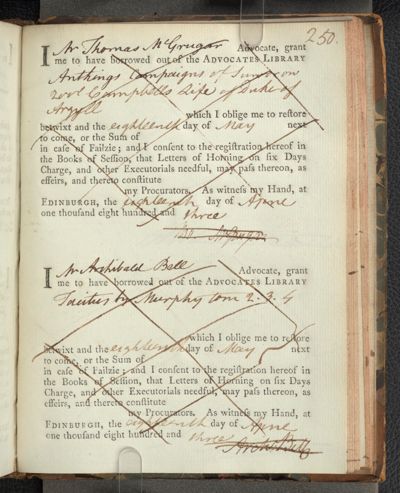 250.
I Mr Thomas McGrugar Advocate, grant
me to have borrowed out of the ADVOCATES LIBRARY
Anthings Campaigns of Suworow
2 vol Campbells Life of Duke of
Argyll
which I oblige me to reſtore
betwixt and the eighteenth day of May next
to come, or the Sum of
in caſe of Failzie; and I conſent to the regiſtration hereof in
the Books of Seſſion, that Letters of Horning on ſix Days
Charge, and other Executorials needful, may paſs thereon, as
effeirs, and thereto conſtitute
my Procurators. As witneſs my Hand, at
EDINBURGH, the eighteenth day of April
one thouſand eight hundred and three
Tho. McGrugar
I Mr Archibald Bell Advocate, grant
me to have borrowed out of the ADVOCATES LIBRARY
Tacitus by Murphy tom 2. 3. 4
which I oblige me to reſtore
betwixt and the eighteenth day of May next
to come, or the Sum of
in caſe of Failzie; and I conſent to the regiſtration hereof in
the Books of Seſſion, that Letters of Horning on ſix Days
Charge, and other Executorials needful, may paſs thereon, as
effeirs, and thereto conſtitute
my Procurators. As witneſs my Hand, at
EDINBURGH, the eighteenth day of April
one thouſand eight hundred and three
Archd Bell